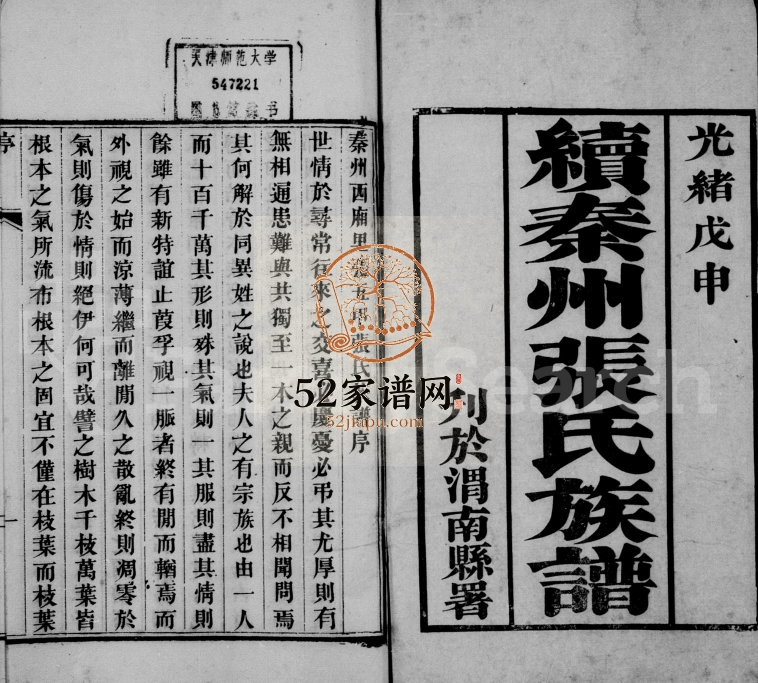 光緒戊申
續秦州張氏族譜
列於渭南縣署
天津师范大学
547221
秦州西廂里張氏序
世情於尋常往來之交喜慶憂必弔其尤厚則有
無相通患難與共獨至一木之親而反不相聞問焉
其何解於同異姓之說也夫人之有宗族也由一人
而十百千萬其形則殊其氣則一其服則盡其情則
餘雖有新特誼止葭孚視一脈者終有閒而輶焉而
外視之始而涼薄繼而離閒久之散亂終則凋零於
氣則傷於情則絕伊何可哉譬之樹木千枝萬葉皆
根本之氣所流布根本之固宜不僅在枝葉而枝葉
序
一
52家谱网
52jiapu.com